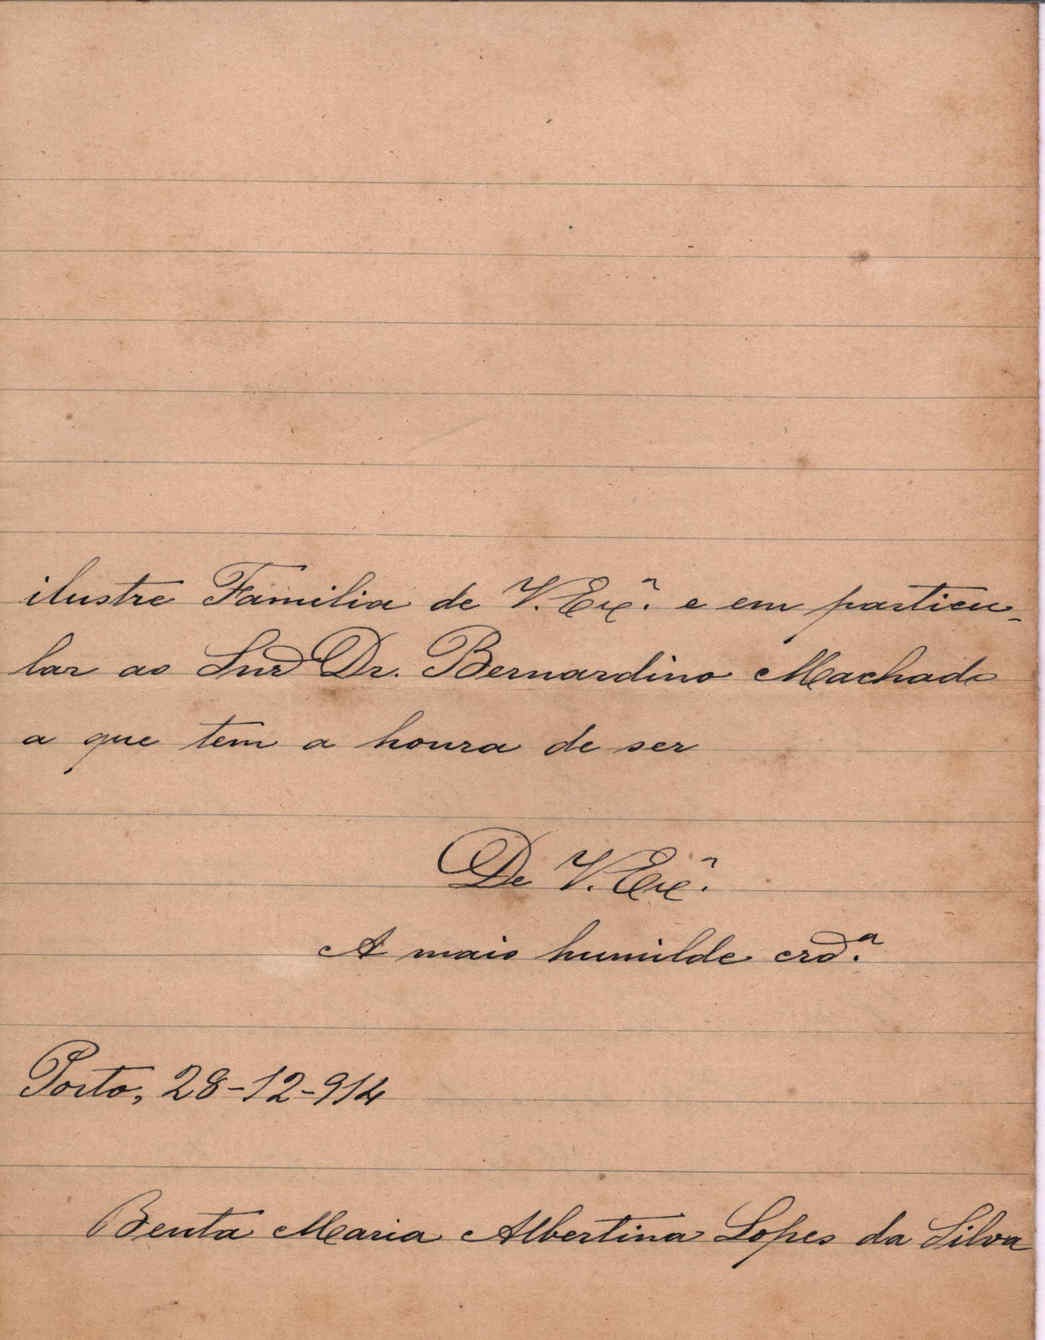 ilustre Familia de V. Exª. e em particu-
lar ao Snr Dr. Bernardino Machado
a que tem a honra de ser
De V. Exª.
A mais humilde crd.ª
Porto, 28-12-914
Benta Maria Albertina Lopes da Silva